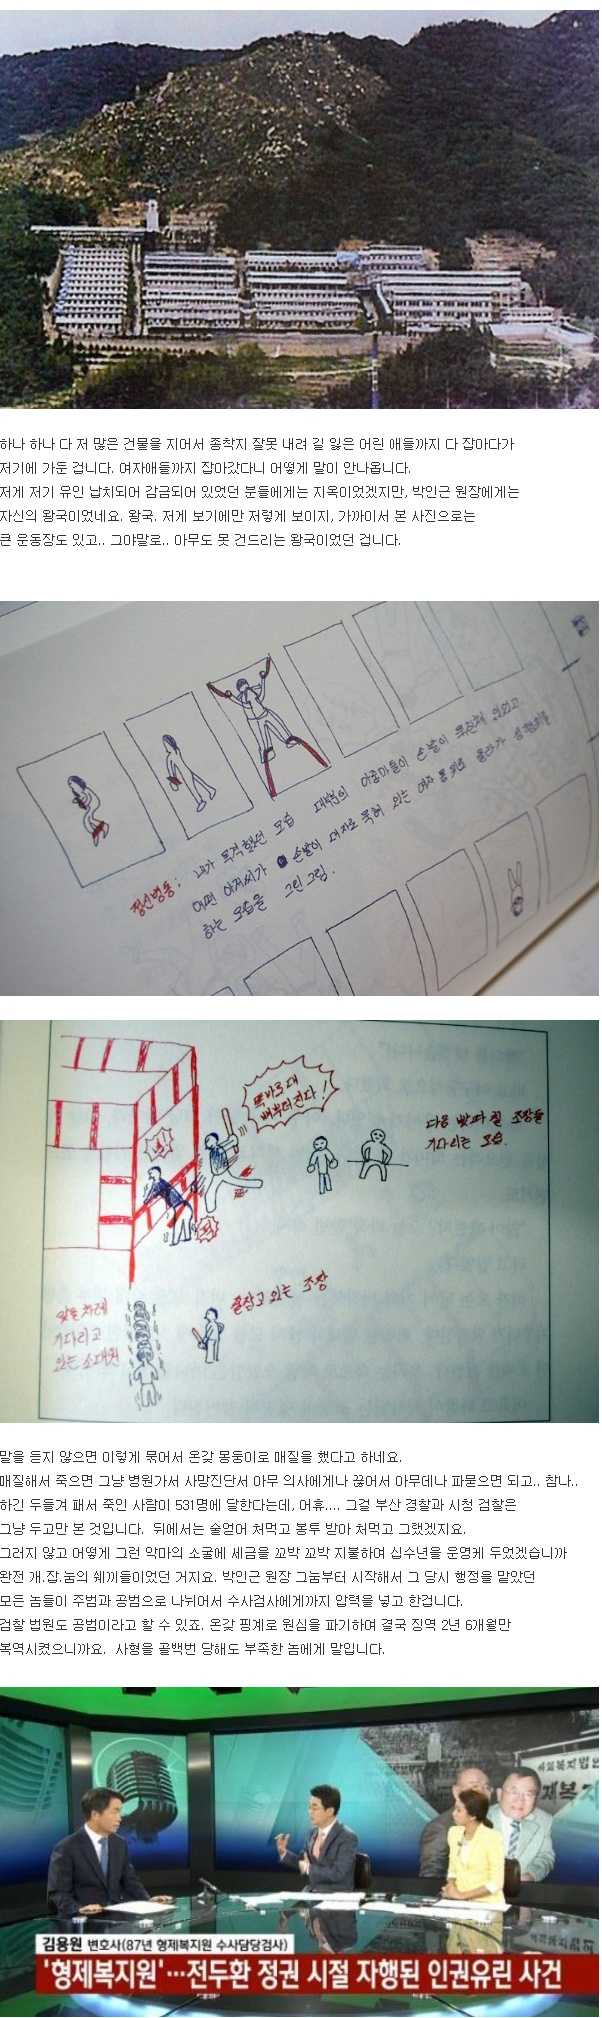 하나 하나 다 저 많은 건물을 지어서 종착지 잘못 내려 길 잃은 어린 애들까지 다 잡아다가
저기에 가둔 겁니다. 여자애들까지 잡아갔다니 어떻게 말이 안나옵니다.
저게 저기 유인 납치되어 감금되어 있었던 분들에게는 지옥이었겠지만, 박인근 원장에게는
자신의 왕국이었네요. 왕국. 저게 보기에만 저렇게 보이지, 가까이서 본 사진으로는
큰 운동장도 있고.. 그야말로.. 아무도 못 건드리는 왕국이었던 겁니다.
정신병동: 내가 목격했던 모습 아줌마들이 손발이 묶인채 있었고
어떤 아저씨가 손발이 대자로 묶여 있는 여자 몸 위로 올라가
하는 모습을 그린 그림.
똑바로 대
다음 빳따 칠 조장들
기다리는 모습.
맞을 차례
기다리고
있는 소대원
폼잡고 있는 조장
말을 듣지 않으면 이렇게 묶어서 온갖 몽둥이로 매질을 했다고 하네요.
매질해서 죽으면 그냥 병원가서 사망진단서 아무 의사에게나 끊어서 아무데나 파묻으면 되고.. 참나..
하긴 두들겨 패서 죽인 사람이 531명에 달한다는데, 어휴.... 그걸 부산 경찰과 시청 검찰은
그냥 두고만 본 것입니다. 뒤에서는 술얻어 처먹고 봉투 받아 처먹고 그랬겠지요.
그러지 않고 어떻게 그런 악마의 소굴에 세금을 꼬박 꼬박 지불하며 십수년을 운영케 두었겠습니까
완전 개.잡.놈의 쉐끼들이었던 거지요. 박인근 원장 그놈부터 시작해서 그 당시 행정을 맡았던
모든 놈들이 주범과 공범으로 나뉘어서 수사검사에게까지 압력을 넣고 한겁니다.
검찰 법원도 공범이라고 할 수 있죠. 온갖 핑계로 원심을 파기하여 결국 징역 2년 6개월만
복역시켰으니까요. 사형을 골백번 당해도 부족한 놈에게 말입니다.
김용원 변호사(87년 형제복지원 수사담당검사)
'형제복지원'…전두환 정권 시절 자행된 인권유린 사건